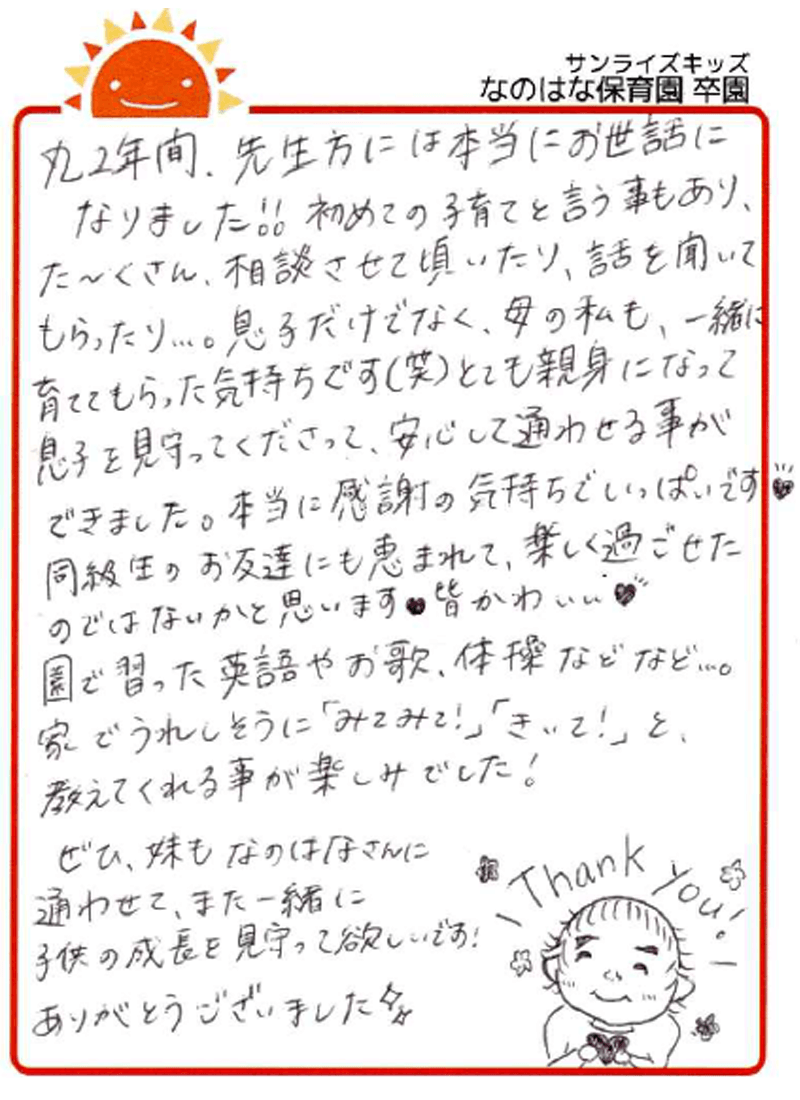 サンライズキッズ
なのはな保育園 卒園
丸2年間、先生方には本当にお世話に
なりました!! 初めての子育てと言う事もあり、
た〜くさん、相談させて頃いたり、話を聞いて
もらったり…。息子だけでなく、母の私も、一緒に
育ててもらった気持ちです(笑)とても親身になって
息子を見守ってくださって、安心して通わせる事が
できました。本当に感謝の気持ちでいっぱいです♥
同級生のお友達にも恵まれて、楽しく過ごせた
のではないかと思います♥皆かわいい♥
園で習った英語やお歌、体操などなど…。
家でうれしそうに「みてみて!」「きいて!」と、
教えてくれる事が楽しみでした!
ぜひ、妹もなのはなさんに
通わせて、また一緒に
子供の成長を見守って欲しいです!
ありがとうございました☆
Thank you!